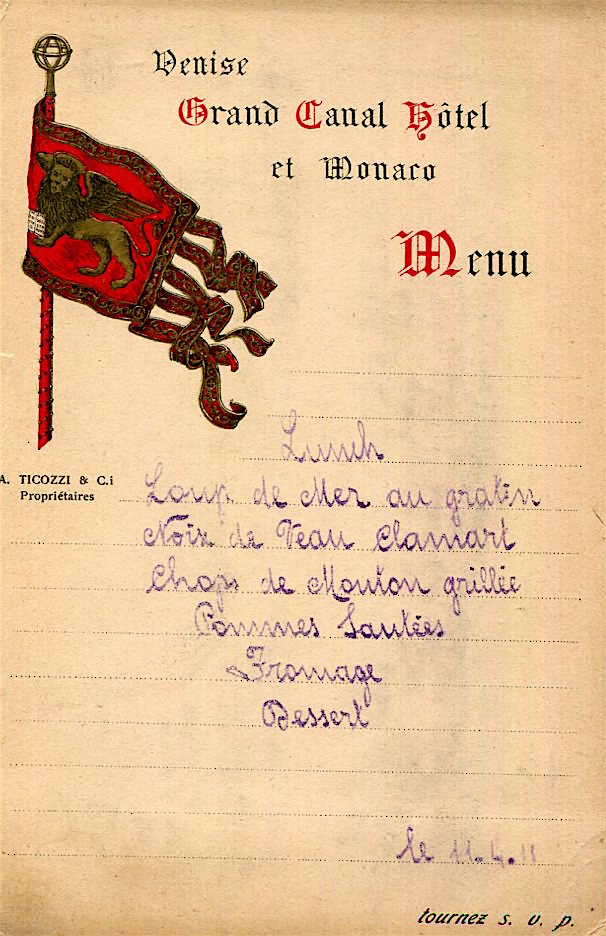 Venise
Grand Canal Hôtel
et Monaco
Menu
A. TICOZZI & C.i
Propriétaires
Lunch
Loup de Mer au gratin
Noix de Veau Clamart
Chops de Mouton grillée
Pommes Sautées
Fromage
Dessert
le 11.4.11
tournez s. v. p.